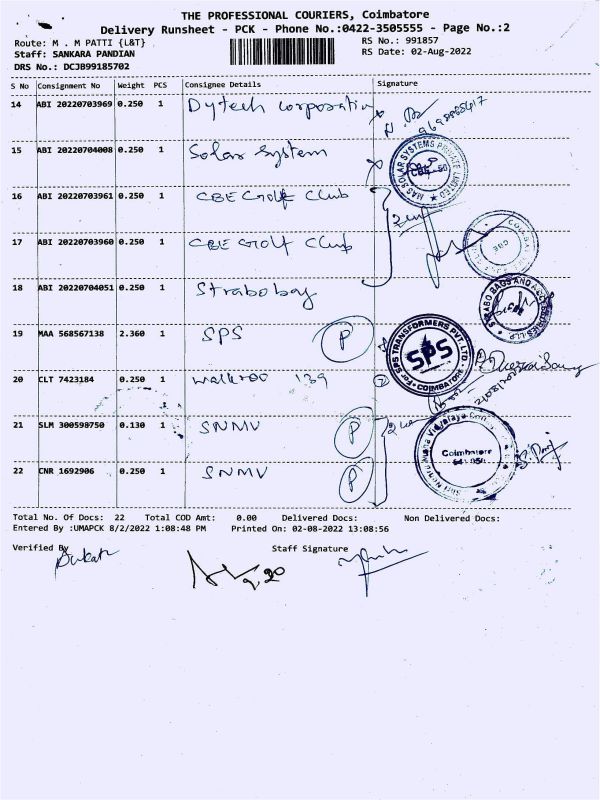 THE PROFESSIONAL COURIERS, Coimbatore
Delivery Runsheet - PCK - Phone No.:0422-3505555 - Page No.:2
Route: M . M PATTI {L&T} RS No.: 991857
Staff: SANKARA PANDIAN RS Date: 02-Aug-2022
DRS No.: DCJB99185702
S No Consignment No Weight PCS Consignee Details Signature
14 ABI 20220703969 0.250 1 Dytech corporation
15 ABI 20220704008 0.250 1 Solar System
MAS SOLAR SYSTEMS PRIVATE LIMITED
16 ABI 20220703961 0.250 1 CBE Golf Club
17 ABI 20220703960 0.250 1 CBE Golf Club
CBE
18 ABI 20220704051 0.250 1 Strabobag
19 MAA 568567138 2.360 1 SPS P
For SPS TRANSFORMERS PVT. LTD.
SPS
COIMBATORE
20 CLT 7423184 0.250 1 walkroo 139
21 SLM 300598750 0.130 1 SNMV P
22 CNR 1692906 0.250 1 SNMV P
Coimbatore
Total No. Of Docs: 22 Total COD Amt: 0.00 Delivered Docs: Non Delivered Docs:
Entered By :UMAPCK 8/2/2022 1:08:48 PM Printed On: 02-08-2022 13:08:56
Verified By Staff Signature